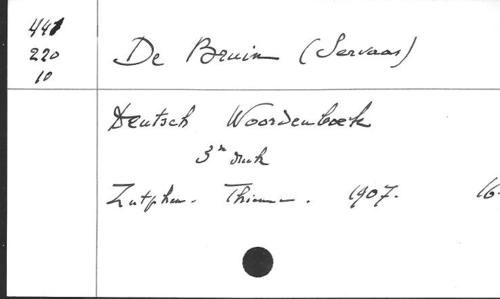 441
220
10
De Bruin (Servaas)
Deutsch Woordenboek
3e druk
Zutphen. Thieme. 1907. 16-